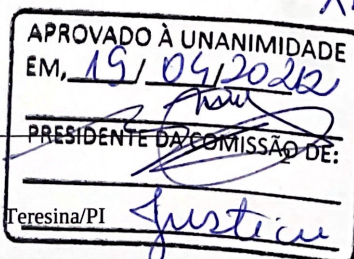 APROVADO À UNANIMIDADE
EM, 19/04/2022
PRESIDENTE DA COMISSÃO DE:
Teresina/PI
Justiça